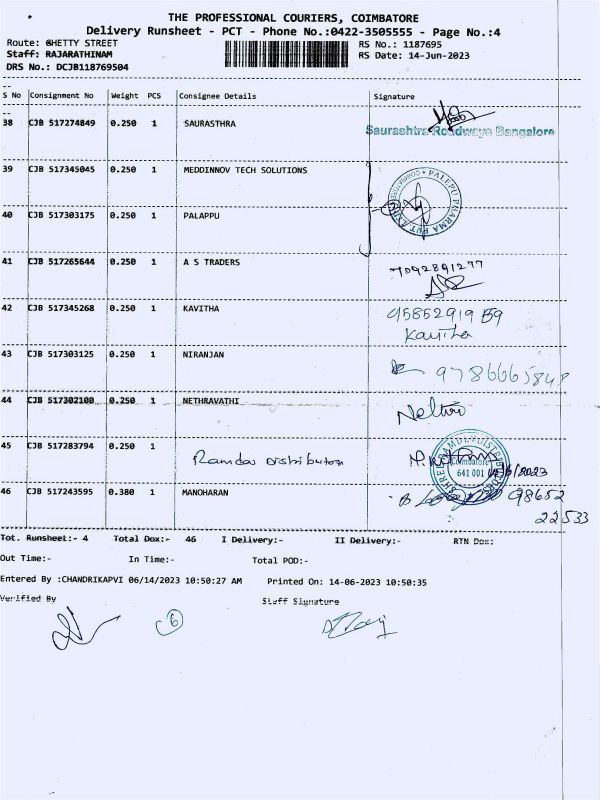 THE PROFESSIONAL COURIERS, COIMBATORE
Delivery Runsheet - PCT - Phone No.:0422-3505555 - Page No.:4
Route: GHETTY STREET RS No.: 1187695
Staff: RAJARATHINAM RS Date: 14-Jun-2023
DRS No.: DCJB118769504
S No Consignment No Weight PCS Consignee Details Signature
38 CJB 517274849 0.250 1 SAURASTHRA
Saurashtra Roadways Bangalore
39 CJB 517345045 0.250 1 MEDDINNOV TECH SOLUTIONS
PALEPU PHARMA PVT.
40 CJB 517303175 0.250 1 PALAPPU
41 CJB 517265644 0.250 1 A S TRADERS 7092891277
42 CJB 517345268 0.250 1 KAVITHA
Kavitha
43 CJB 517303125 0.250 1 NIRANJAN
9786665848
44 CJB 517302100 0.250 1 NETHRAVATHI
45 CJB 517283794 0.250 1
Ramdas Distributors Coimbatore
641 001
46 CJB 517243595 0.380 1 MANOHARAN 98652
22533
Tot. Runsheet:- 4 Total Dox:- 46 I Delivery:- II Delivery:- RTN Dox:
Out Time:- In Time:- Total POD:-
Entered By :CHANDRIKAPVI 06/14/2023 10:50:27 AM Printed On: 14-06-2023 10:50:35
Verified By Staff Signature
6